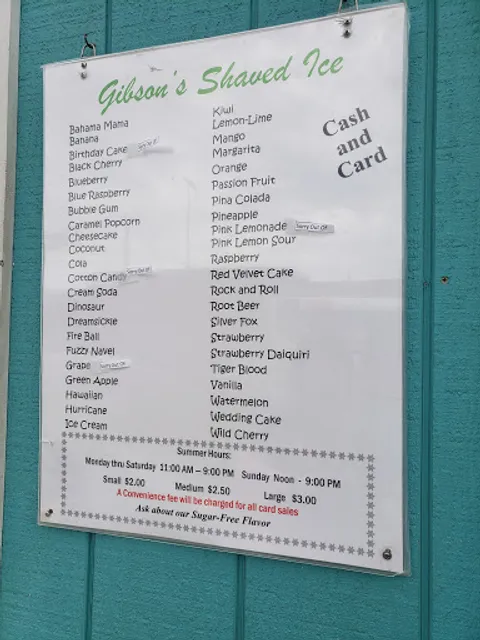 Gibson's Shaved Ice
Cash
and
Card
Bahama Mama
Banana
Birthday Cake
Black Cherry
Blueberry
Blue Raspberry
Bubble Gum
Caramel Popcorn
Cheesecake
Coconut
Cola
Cotton Candy Sorry Out Of
Cream Soda
Dinosaur
Dreamsickle
Fire Ball
Fuzzy Navel
Grape Sorry Out Of
Green Apple
Hawaiian
Hurricane
Ice Cream
Kiwi
Lemon-Lime
Mango
Margarita
Orange
Passion Fruit
Pina Colada
Pineapple
Pink Lemonade Sorry Out Of
Pink Lemon Sour
Raspberry
Red Velvet Cake
Rock and Roll
Root Beer
Silver Fox
Strawberry
Strawberry Daiquiri
Tiger Blood
Vanilla
Watermelon
Wedding Cake
Wild Cherry
Summer Hours:
Monday thru Saturday 11:00 AM – 9:00 PM Sunday Noon - 9:00 PM
Small $2.00 Medium $2.50 Large $3.00
A Convenience fee will be charged for all card sales
Ask about our Sugar-Free Flavor